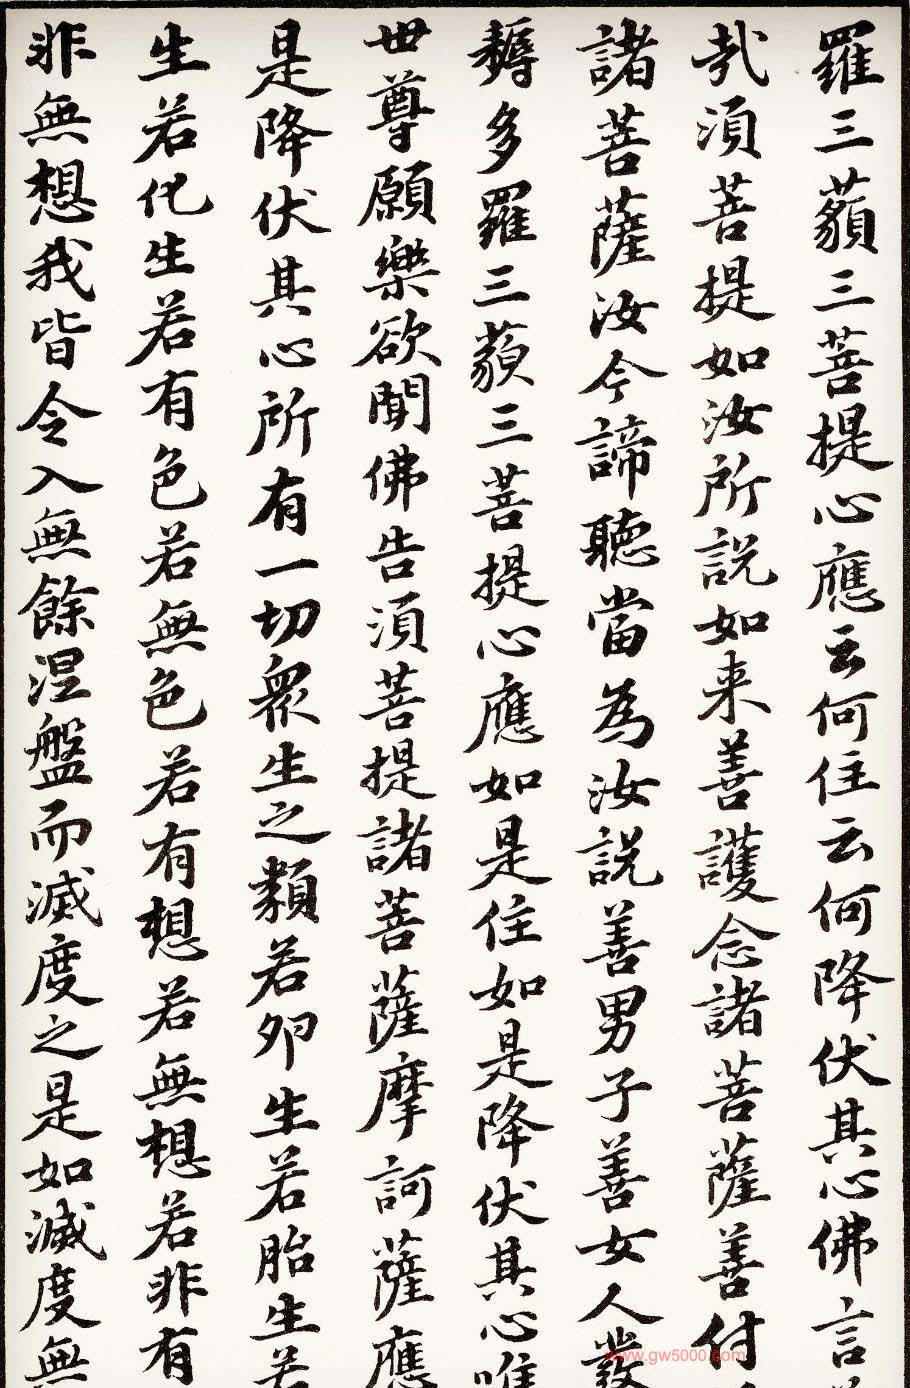 羅三藐三菩提心應云何住云何降伏其心佛言
哉須菩提如汝所説如来善護念諸菩薩善付
諸菩薩汝今諦聽當為汝説善男子善女人發
耨多羅三藐三菩提心應如是住如是降伏其心唯
世尊願樂欲聞佛告須菩提諸菩薩摩訶薩應
是降伏其心所有一切衆生之類若卵生若胎生若
生若化生若有色若無色若有想若無想若非有
非無想我皆令入無餘涅盤而滅度之是如滅度無
www.gw5000.com